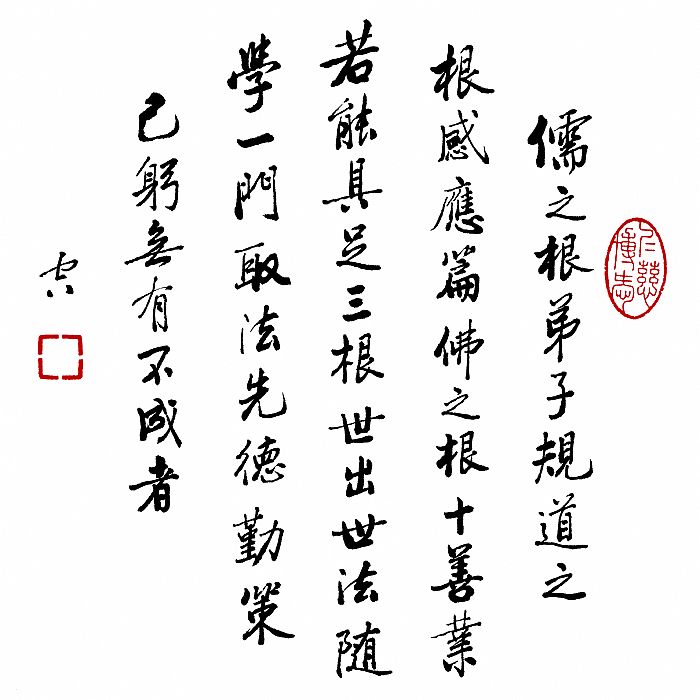 仁慈博愛
儒之根弟子規道之
根感應篇佛之根十善業
若能具足三根世出世法随
學一門取法先德勤策
己躬無有不成者